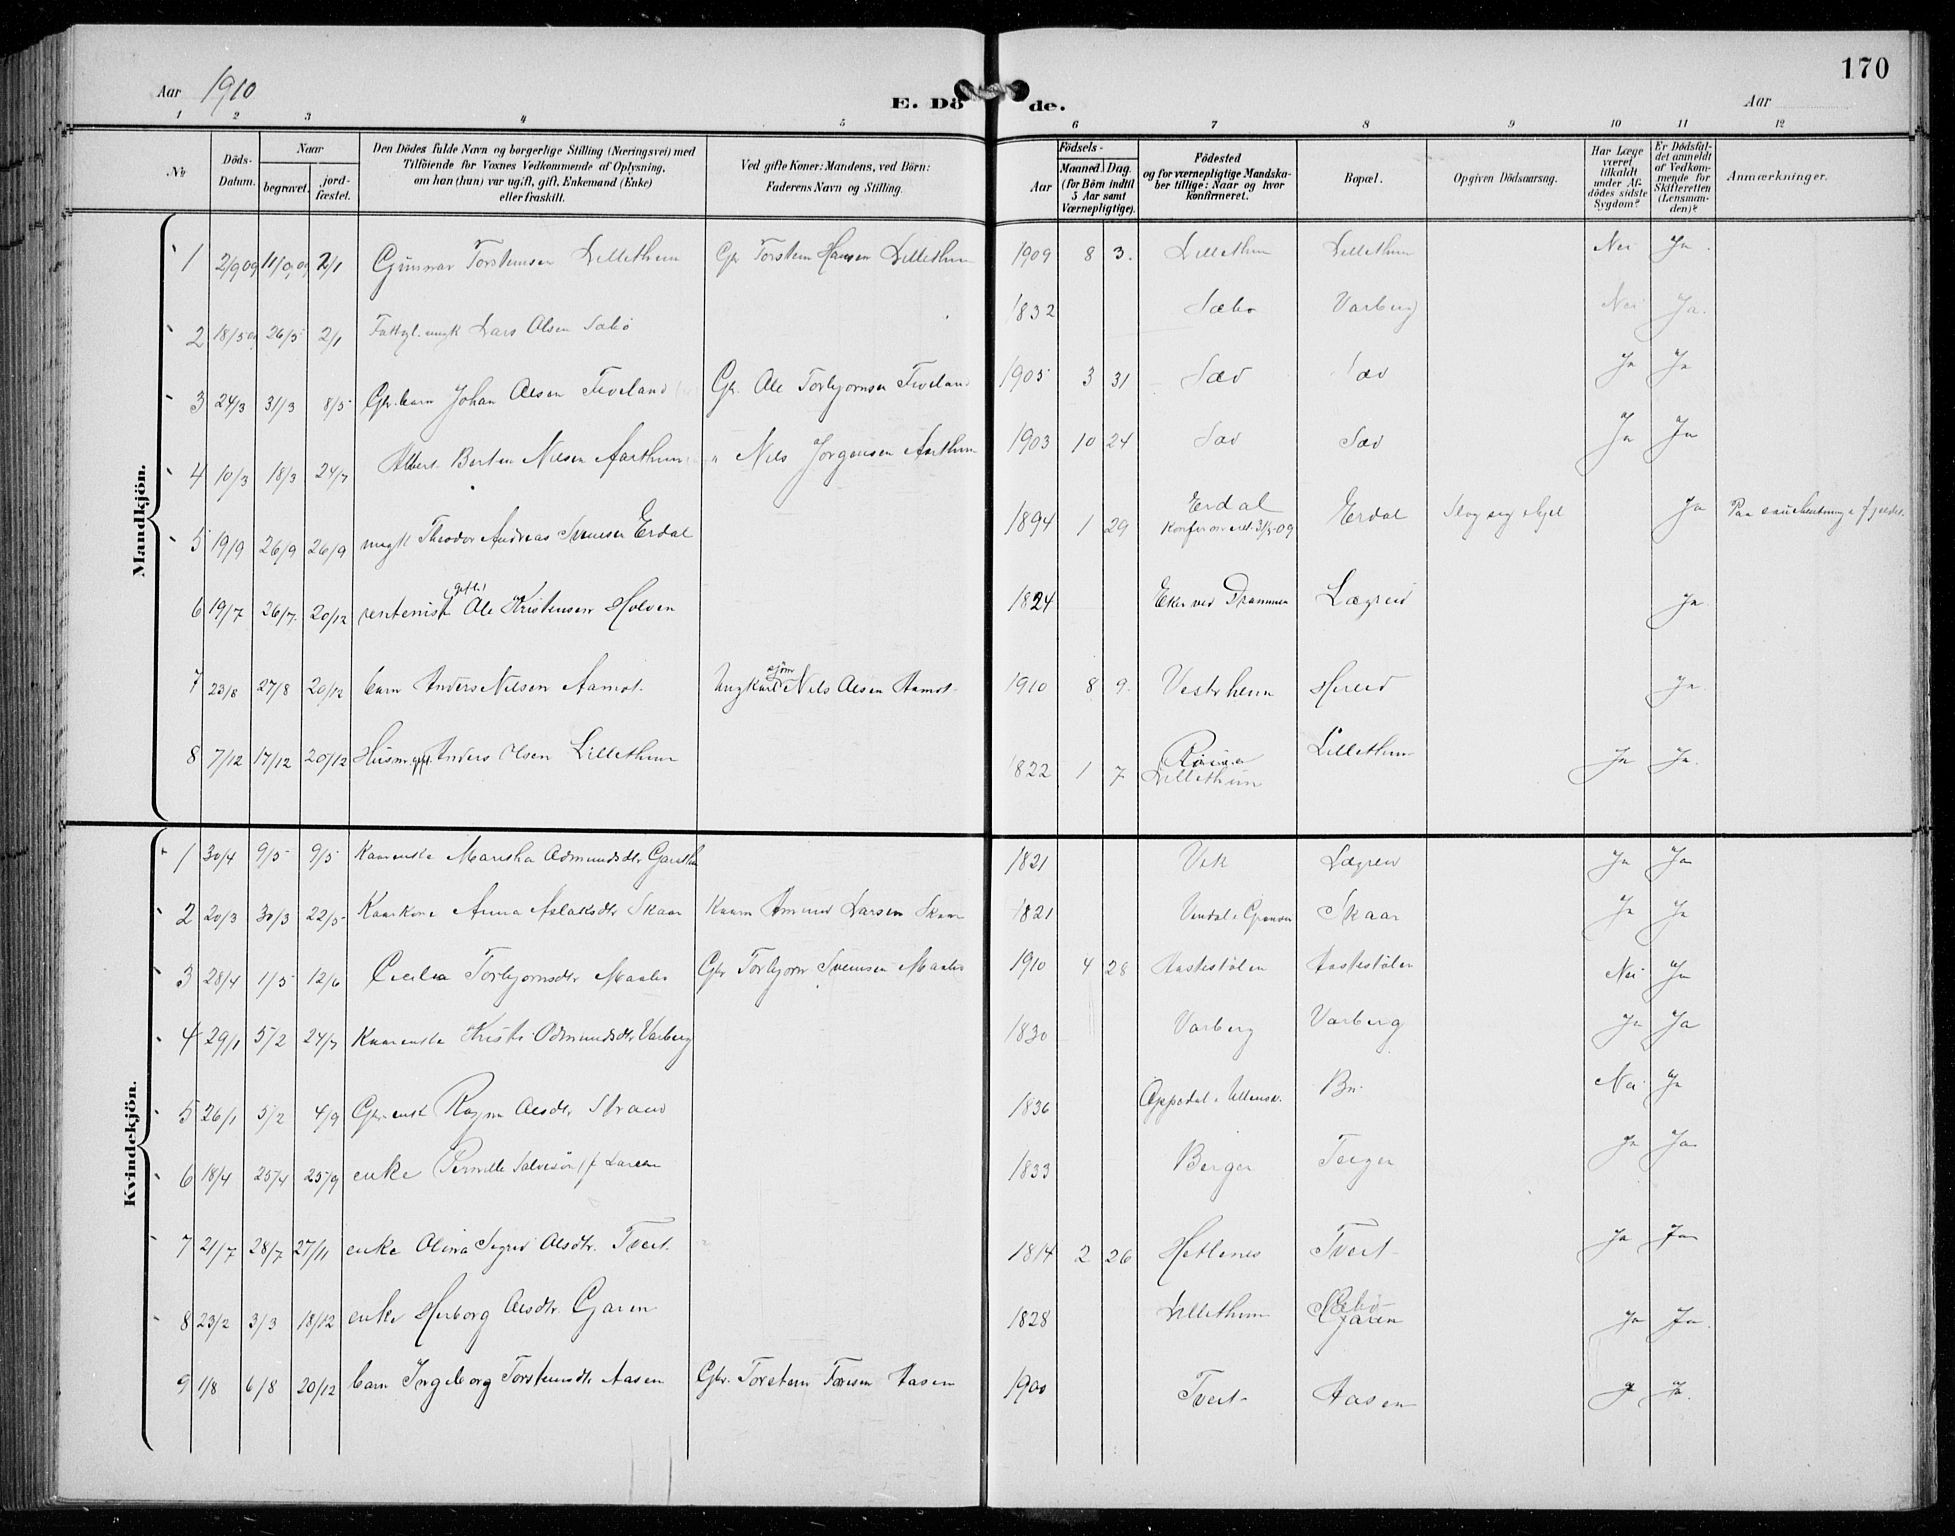 170
Aar 1910
E. Dö de.
Aar
1 2 3 4 5 6 7 8 9 10 11 12
No
Döds-Datum.
Naar
begravet.
jord-fæstet.
Den Dödes fulde Navn og borgerlige Stilling (Næringsvei) med
Tilföiende for Voxnes Vedkommende af Oplysning,
om han (hun) var ugift, gift, Enkemand (Enke)
eller fraskilt.
Ved gifte Koner: Mandens, ved Börn:
Faderens Navn og Stilling.
Födsels-
Aar
Maaned. Dag.
(for Börn indtil
5 Aar samt
Værnepligtige).
Födested
og for værnepligtige Mandska-
ber tillige: Naar og hvor
konfirmeret.
Bopæl.
Opgiven Dödsaarsag.
Har Læge
været
tilkaldt
under Af-
dödes sidste
Sygdom?
Er Dödsfal-
det anmeldt
af Vedkom-
mende for
Skifteretten
(Lensman-
den)?
Anmærkninger.
Mandkjön.
1 2/9 09 11/9 09 2/1 Gunnar Torsteinsen Lillethun Gbr Torstein Hansen Lillethun 1909 8 3. Lillethun Lillethun Nei Ja
2 18/5 09 26/5 2/1 Lars Olsen Sæbö 1832 Sæbo Varberg Nei Ja
3 24/3 31/3 8/5 Gbr. barn Johan Olsen Tveiland Gbr. Ole Torbjornsen Tveiland 1905 3 31 Sæd Sæd Ja Ja
4 10/3 18/3 24/7 Albert Bertin Nilsen Aarthun " Nils Jørgensen Aarthun 1903 10 24 Sæd Sæd Ja Ja
5 19/9 26/9 26/9 ungk Theodor Andreas Svensen Erdal 1894 1 29 Erdal Erdal Slog sig ihjel Ja Paa
6 19/7 26/7. 20/12 rentenist (gift) Ole Kristensen Holven 1824 Eker ved Drammen Lægreid Ja
7 23/8 27/8 20/12 barn Anders Nilsen Aamot. Ungkarl sjöm Nils Olsen Aamot. 1910 8 9. Vestrheim Hereid Ja
8 7/12 17/12 20/12 Husm. gift. Anders Olsen Lillethun 1822 1 7 Lillethun Lillethun Ja Ja
Kvindekjön.
1 30/4 9/5 9/5 Kaarenke Maritha Odmundsdtr 1821 Vik Lægreid Ja Ja
2 20/3 30/3 22/5 Kaarkone Anna Aslaksdtr Skaar Kaarm Amund Larsen Skaar 1821 Skaar Ja Ja
3 28/4 1/5 12/6 Cecilia Torbjornsdtr Maabo Gbr Torbjorn Svensen Maabo 1910 4 28 Hastestölen Hastestölen Nei Ja
4 29/1 5/2 24/7 Kaarenke Kristi Odmundsdtr Varberg 1830 Varberg Varberg Ja Ja
5 26/1 5/2 4/9 Gbr enk Olsdtr Strand 1836 Oppedal i Ullensv. Bu Nei Ja
6 18/4 25/4 25/9 enke Pernille 1833 Berger Ja Ja
7 21/7 28/7 27/11 enke Olina Sigrid Olsdtr. Tveit. 1814 2 26 Hetlenes Tveit Ja Ja
8 23/2 3/3 18/12 enke Herborg Olsdtr. Garen 1828 Lillethun Sæbö Garen Ja Ja
9 1/8 6/8 20/12 barn Ingeborg Torsteinsdtr Aasen Gbr. Torstein Aasen 1900 Tveit Aasen Ja